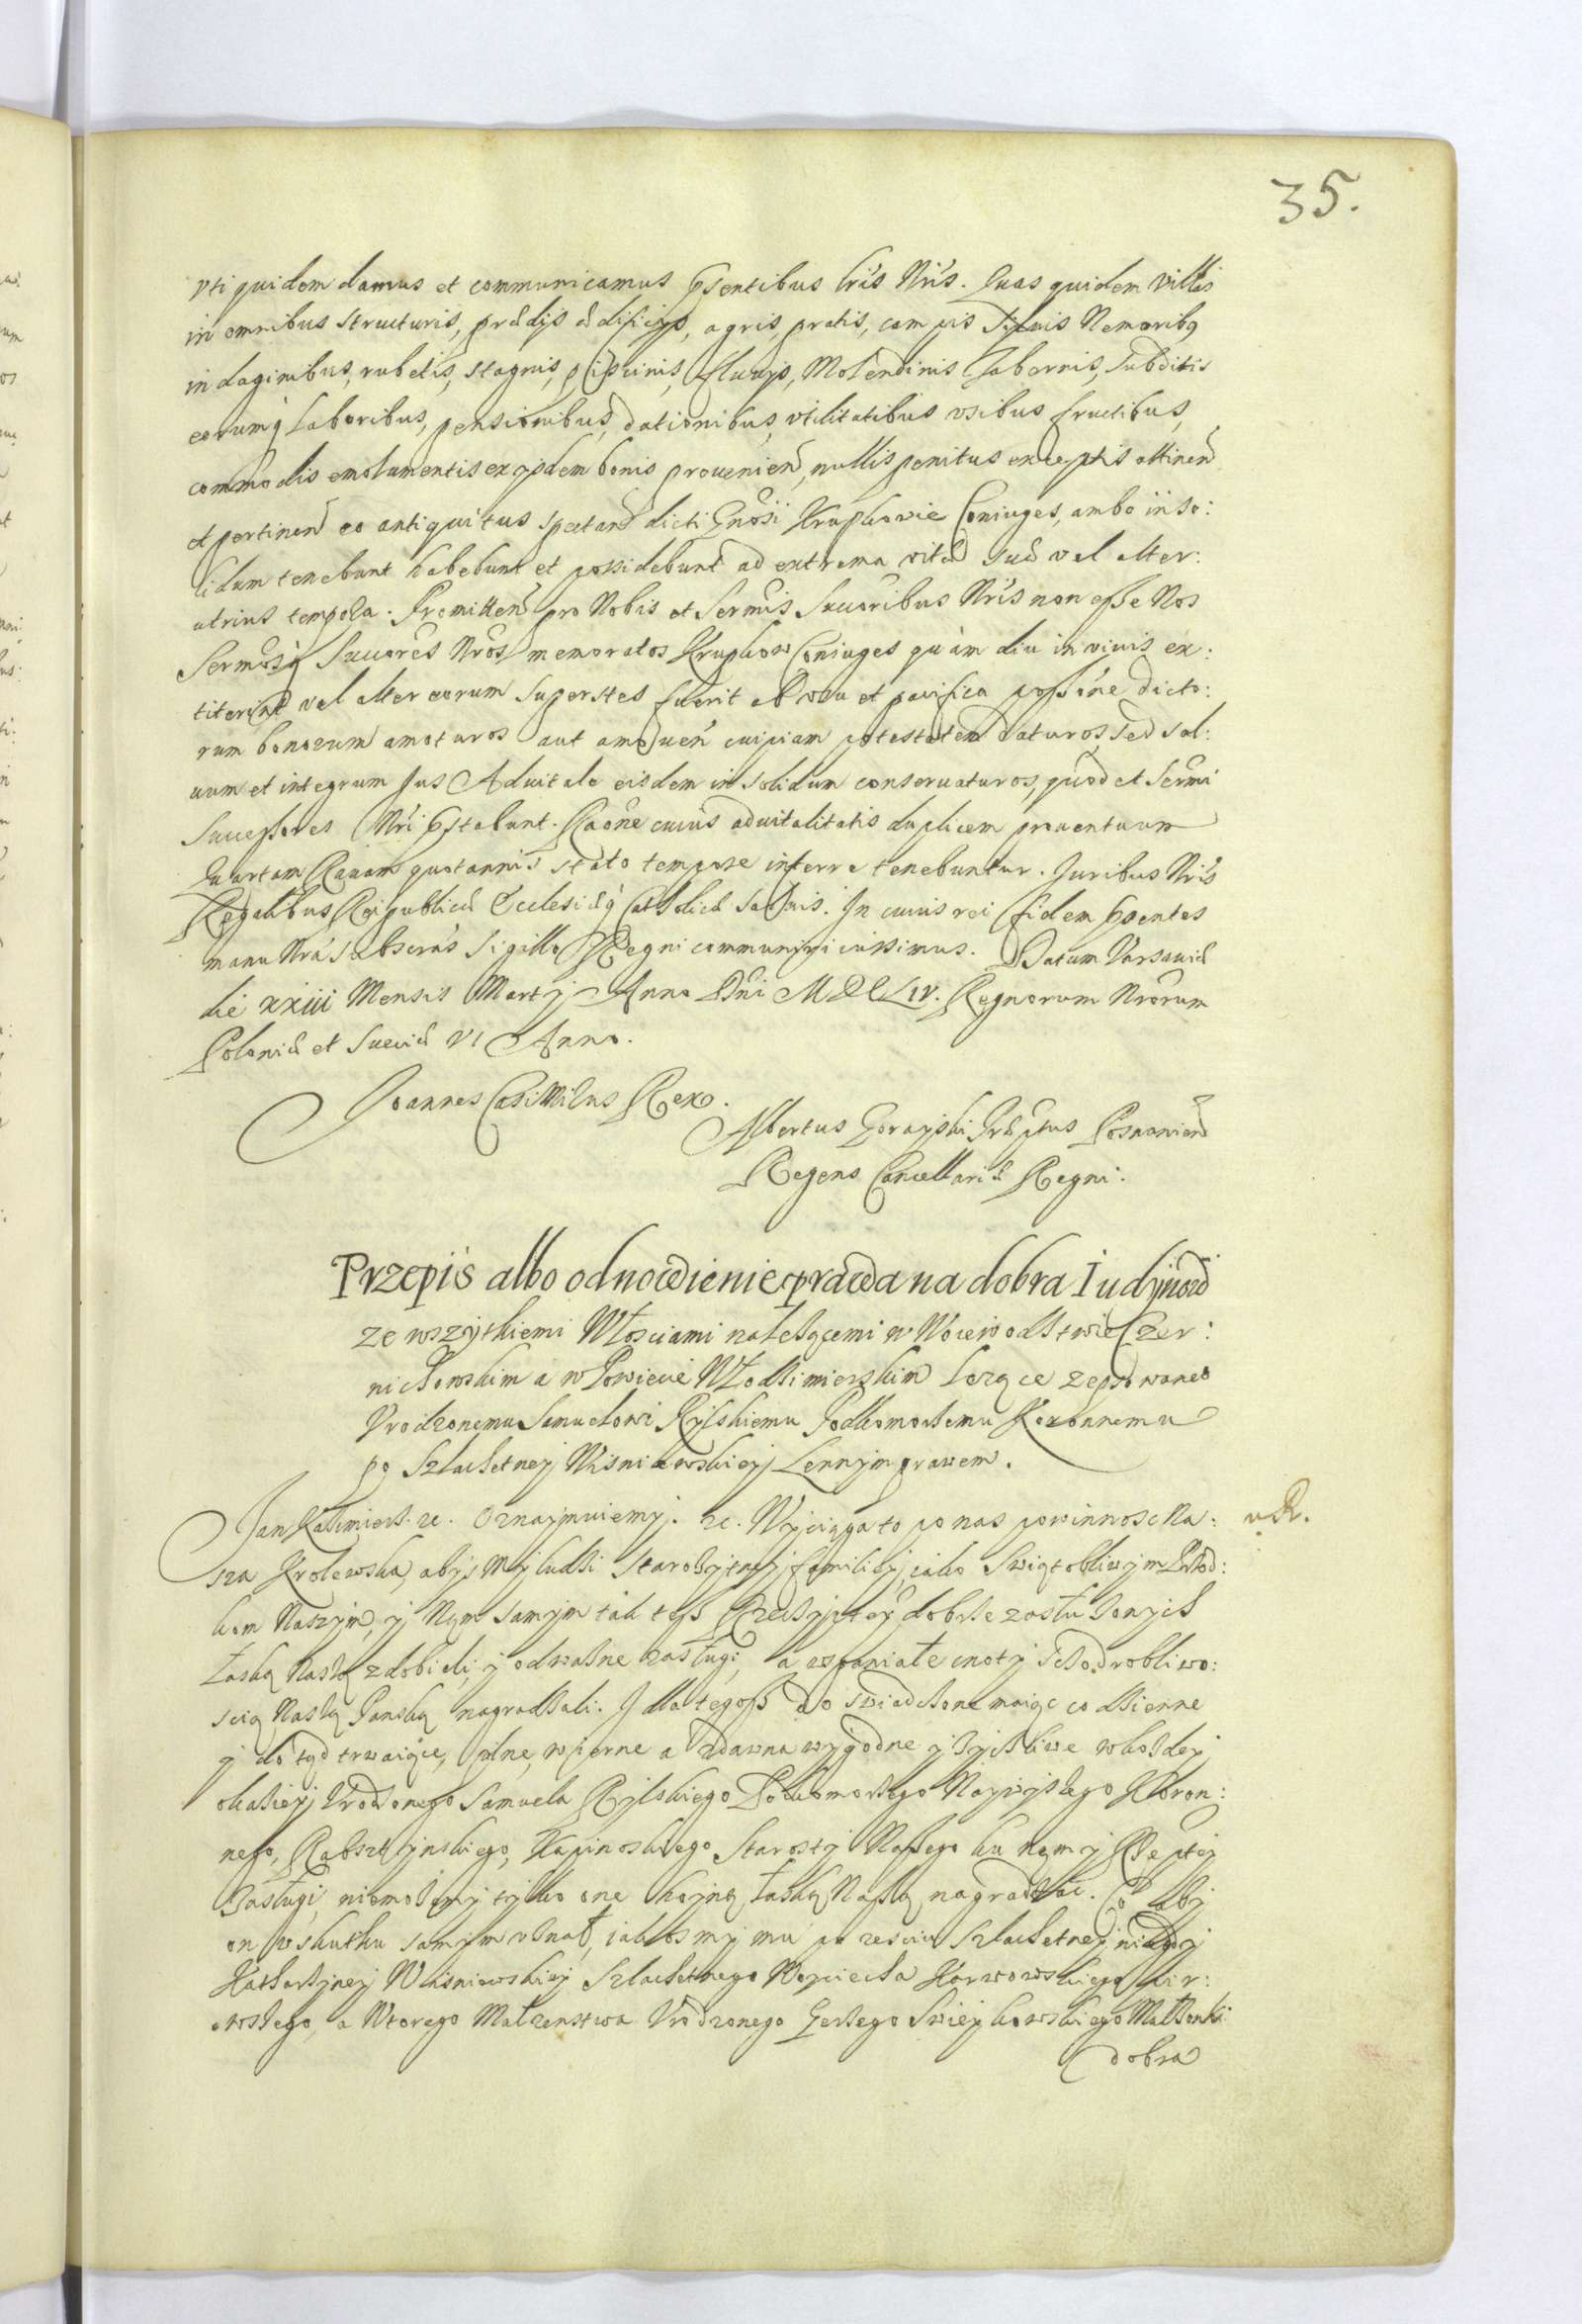 35.
vti quidem damus et communicamus pntibus lris Nris. Quas quidem villas
in omnibus structuris, prædijs ædificijs, agris, pratis, campis Siluis Nemoribq
indaginibus, rubetis, stagnis, piscinis, fluuijs, Molendinis Tabernis, Subditis
eorumq Laboribus, pensionibus, dationibus, vtilitatibus vsibus fructibus,
commodis emolumentis ex ijsdem bonis prouenien, nullis penitus exceptis attinen
et pertinen eo antiquitus spectan dicti Gnosi Krupkowie Coniuges, ambo in so:
lidum tenebunt habebunt et possidebunt ad extrema vitæ suæ vel alter:
utrius tempora. Promitten pro Nobis et Sermis Succoribus Nris non esse Nos
Sermosq Succores Nros memoratos Krupkow Coniuges quàm diu in viuis ex:
titerint vel alter eorum superstes fuerit ab vsu et pacifica possōne dicto:
rum bonorum amoturos aut amouen cuipiam potestatem daturos, sed sal:
uum et integrum Jus Aduitale eisdem in solidum conseruaturos, quod et Sermi
Successores Nri pstabunt. Raōne cuius aduitalitatis duplicem prouentuum
Quartam Rauam quotannis stato tempore inferre tenebuntur. Juribus Nris
Regalibus Reipublicæ Ecclesiæq Catholicæ saluis. In cuius rei fidem pntes
manu Nra subscras sigillo Regni communiri iussimus. Datum Varsauiæ
die xxiii Mensis Martij Anno Dni MDCLIV. Regnorum Nrorum
Poloniæ et Sueciæ VI Anno.
Joannes Casimirus Rex.
Albertus Gorayski Præptus Posnanien
Regens Cancellariæ Regni.
Przepis albo odnowienie prawa na dobra Iudynow
ze wszytkiemi Włosciami należącemi w Woiewodstwie Czer:
nichowskim a w Powiecie Włodzimierskim leżące
Vrodzonemu Samuelowi Rylskiemu Podkomorzemu Koronnemu
po Szlachetney Wisniewskieyj Lennym prawem.
Jan Kazimierz. ec. Oznaymuiemy. ec. Wyciąga to po nas powinnosc Na:
sza Krolewska, abysmy ludzi starożytnyj familiey, iako Swiątobliwym Przod:
kom Naszym, y Nąm samym tak też Rzeczyptey dobrze zasłużonych
łaską Naszą zdobieli, y odważne zasługi, a wspaniałe cnoty szczodrobliwo:
scią Naszą Panską nagradzali. I dla tegosz doswiadczone maiąc codzienne
y do tąd trwaiące, pilne, wierne a zdawna wygodne y życzliwe w każdey
okazieyj Vrodzonego Samuela Rylskiego Podkomorzego Naywyższego Koron:
nego, Rabsztynskiego, Starosty Naszego ku nąm y Rzeptey
zasługi, niemożemy tylko one hoyną łaską Naszą nagradzac. Co aby
on w skutku samym vznał, iakosmy mu po zesciu Szlachetney niegdy
Katharzyney Wisniewskiey Szlachetnego Woyciecha Karwowskiego pier:
wszego, a Wtorego Małzenstwa Vrodzonego Jerzego Małżonki
dobra